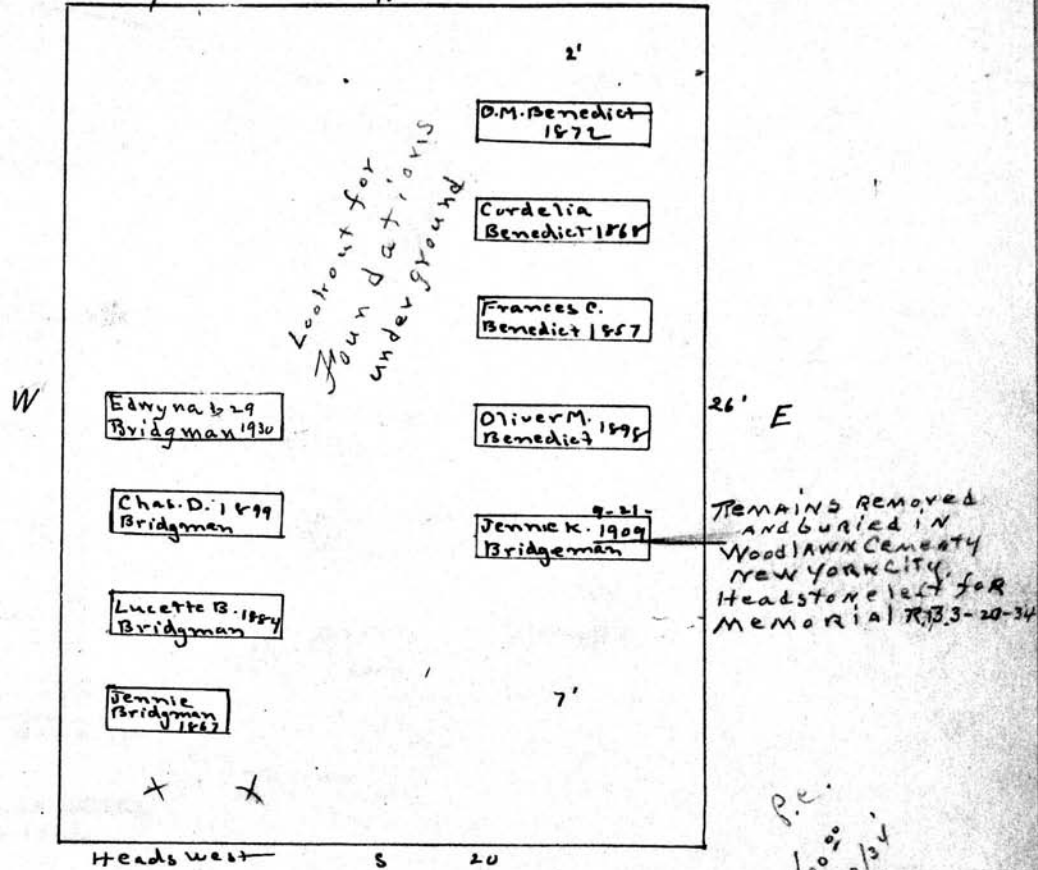 2'
O.M. Benedict
1872
Cordelia
Benedict 1868
Lookout for
Foundations
under ground
Frances C.
Benedict 1857
W
Edwyna b 29
Bridgman 1930
Oliver M. 1898
Benedict
26' E
Chas. D. 1899
Bridgman
9-21-
Jennie K. 1909
Bridgeman
Remains Removed
and buried in
Woodlawn Cemeaty
New York City.
Headstone left for
Memorial R.B. 3-20-34
Lucette B. 1884
Bridgman
Jennie
Bridgman
1867
7'
X X
P.C.
Heads west S 20